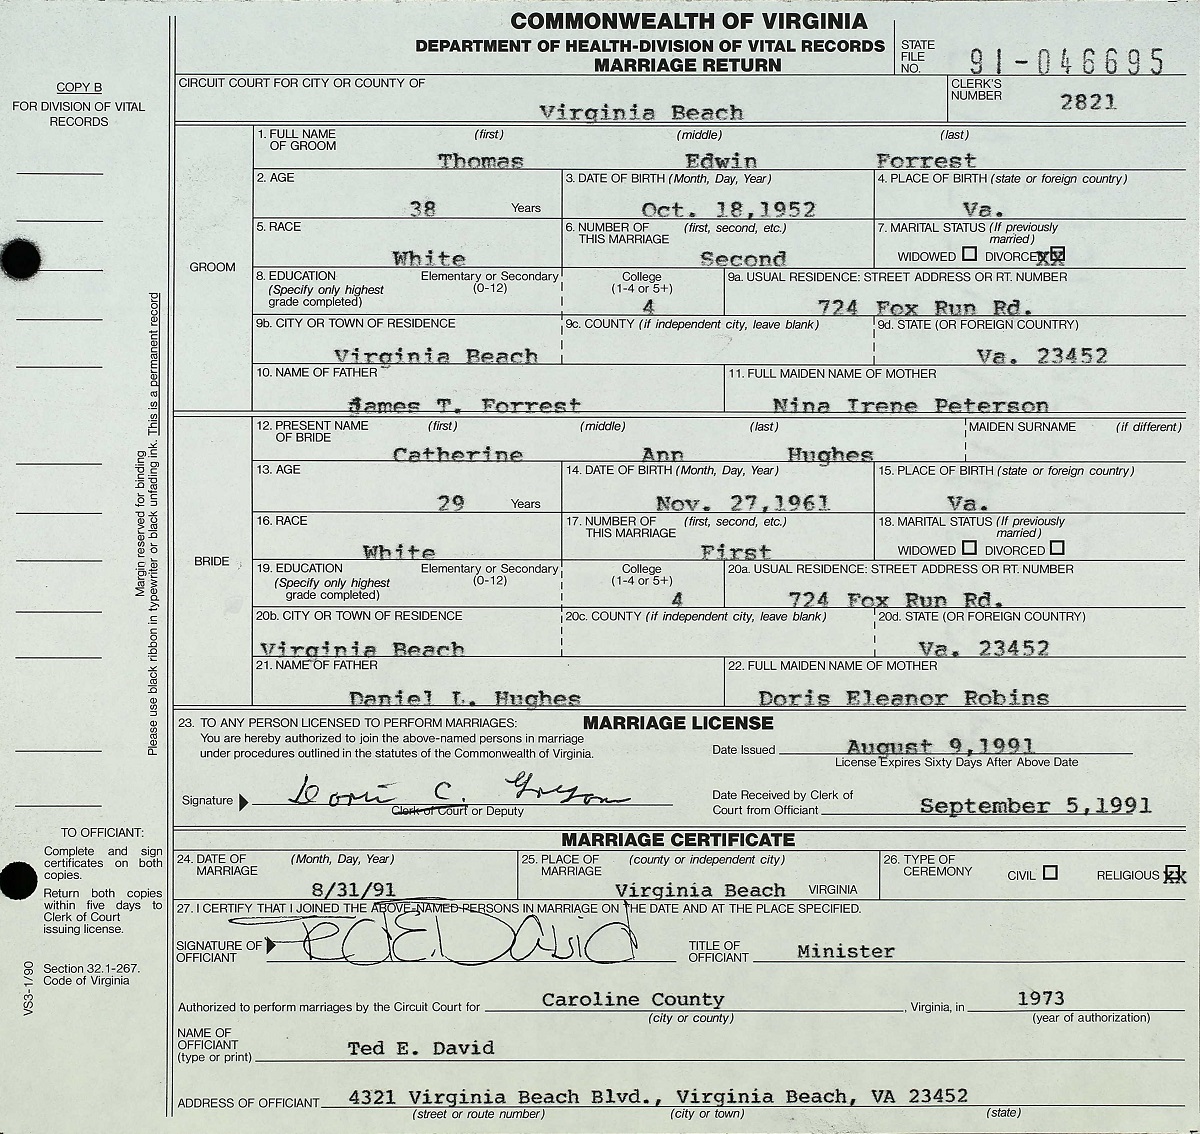 COMMONWEALTH OF VIRGINIA
DEPARTMENT OF HEALTH-DIVISION OF VITAL RECORDS
MARRIAGE RETURN
STATE FILE NO. 91-046695
COPY B
FOR DIVISION OF VITAL RECORDS
CIRCUIT COURT FOR CITY OR COUNTY OF
Virginia Beach
CLERK'S NUMBER 2821
GROOM
1. FULL NAME OF GROOM (first) (middle) (last)
Thomas Edwin Forrest
2. AGE 3. DATE OF BIRTH (Month, Day, Year) 4. PLACE OF BIRTH (state or foreign country)
38 Years Oct. 18,1952 Va.
5. RACE 6. NUMBER OF THIS MARRIAGE (first, second, etc.) 7. MARITAL STATUS (If previously married)
White Second WIDOWED DIVORCED XX
8. EDUCATION (Specify only highest grade completed) Elementary or Secondary (0-12) College (1-4 or 5+) 9a. USUAL RESIDENCE: STREET ADDRESS OR RT. NUMBER
4 724 Fox Run Rd.
9b. CITY OR TOWN OF RESIDENCE 9c. COUNTY (if independent city, leave blank) 9d. STATE (OR FOREIGN COUNTRY)
Virginia Beach Va. 23452
10. NAME OF FATHER 11. FULL MAIDEN NAME OF MOTHER
James T. Forrest Nina Irene Peterson
BRIDE
12. PRESENT NAME OF BRIDE (first) (middle) (last) MAIDEN SURNAME (if different)
Catherine Ann Hughes
13. AGE 14. DATE OF BIRTH (Month, Day, Year) 15. PLACE OF BIRTH (state or foreign country)
29 Years Nov. 27,1961 Va.
16. RACE 17. NUMBER OF THIS MARRIAGE (first, second, etc.) 18. MARITAL STATUS (If previously married)
White First WIDOWED DIVORCED
19. EDUCATION (Specify only highest grade completed) Elementary or Secondary (0-12) College (1-4 or 5+) 20a. USUAL RESIDENCE: STREET ADDRESS OR RT. NUMBER
4 724 Fox Run Rd.
20b. CITY OR TOWN OF RESIDENCE 20c. COUNTY (if independent city, leave blank) 20d. STATE (OR FOREIGN COUNTRY)
Virginia Beach Va. 23452
21. NAME OF FATHER 22. FULL MAIDEN NAME OF MOTHER
Daniel L. Hughes Doris Eleanor Robins
Margin reserved for binding
Please use black ribbon in typewriter or black unfading ink. This is a permanent record
23. TO ANY PERSON LICENSED TO PERFORM MARRIAGES: MARRIAGE LICENSE
You are hereby authorized to join the above-named persons in marriage
under procedures outlined in the statutes of the Commonwealth of Virginia.
Date Issued August 9,1991
License Expires Sixty Days After Above Date
Signature Doris C.
Clerk of Court or Deputy
Date Received by Clerk of Court from Officiant September 5,1991
MARRIAGE CERTIFICATE
24. DATE OF MARRIAGE (Month, Day, Year) 25. PLACE OF MARRIAGE (county or independent city) 26. TYPE OF CEREMONY CIVIL RELIGIOUS XX
8/31/91 Virginia Beach VIRGINIA
27. I CERTIFY THAT I JOINED THE ABOVE-NAMED PERSONS IN MARRIAGE ON THE DATE AND AT THE PLACE SPECIFIED.
SIGNATURE OF OFFICIANT Ted E. David TITLE OF OFFICIANT Minister
Authorized to perform marriages by the Circuit Court for Caroline County, Virginia, in 1973
(city or county) (year of authorization)
NAME OF OFFICIANT (type or print) Ted E. David
ADDRESS OF OFFICIANT 4321 Virginia Beach Blvd., Virginia Beach, VA 23452
(street or route number) (city or town) (state)
TO OFFICIANT:
Complete and sign
certificates on both
copies.
Return both copies
within five days to
Clerk of Court
issuing license.
Section 32.1-267.
Code of Virginia
VS3-1/90